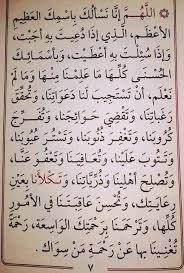 اَللّٰهُمَّ إِنَّا نَسْأَلُكَ بِاسْمِكَ الْعَظِيمِ
الأَعْظَمِ، الَّذِي إِذَا دُعِيتَ بِهِ أَجَبْتَ،
وَإِذَا سُئِلْتَ بِهِ أَعْطَيْتَ، وَبِأَسْمَائِكَ
الْحُسْنَى كُلِّهَا مَا عَلِمْنَا مِنْهَا وَمَا لَمْ
نَعْلَمْ، أَنْ تَسْتَجِيبَ لَنَا دَعَوَاتِنَا، وَتُحَقِّقَ
رَغَبَاتِنَا، وَتَقْضِيَ حَوَائِجَنَا، وَتُفَرِّجَ
كُرُوبَنَا، وَتَغْفِرَ ذُنُوبَنَا، وَتَسْتُرَ عُيُوبَنَا،
وَتَتُوبَ عَلَيْنَا، وَتُعَافِيَنَا وَتَعْفُوَ عَنَّا،
وَتُصْلِحَ أَهْلِينَا وَذُرِّيَّاتِنَا، وَتَكْلَأَنَا بِعَيْنِ
رِعَايَتِكَ، وَتُحْسِنَ عَاقِبَتَنَا فِي الأُمُورِ
كُلِّهَا، وَتَرْحَمَنَا بِرَحْمَتِكَ الْوَاسِعَةِ، رَحْمَةً
تُغْنِينَا بِهَا عَنْ رَحْمَةِ مَنْ سِوَاكَ.
٧